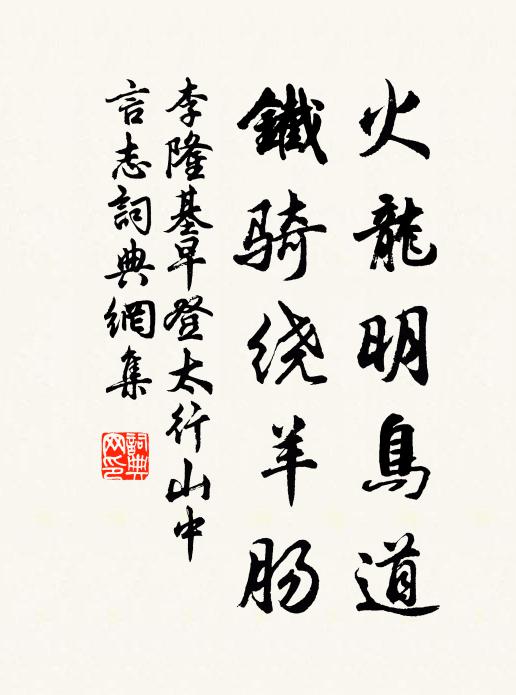 火龍明鳥道
鐵骑绕羊肠
李隆基早登太行山中
言志詞典網集
詞典网印